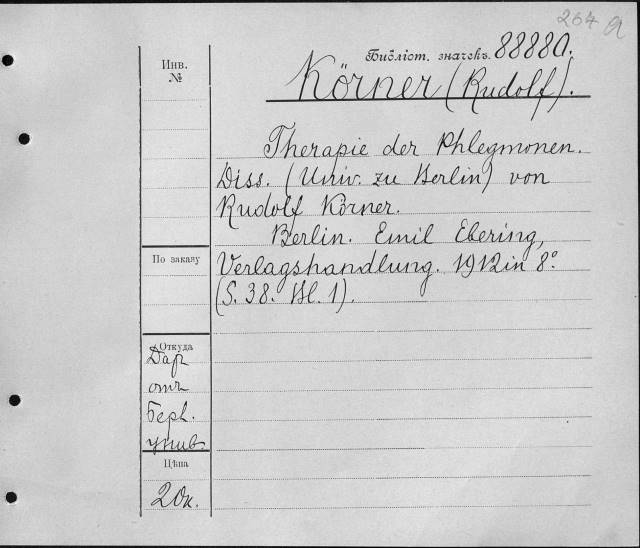 264 a
Библіот. значекъ. 88880.
Körner (Rudolf).
Инв.
№
Therapie der Phlegmonen.
Diss. (Univ. zu Berlin) von
Rudolf Körner.
Berlin. Emil Ebering,
Verlagshandlung. 1912 in 8º.
(S. 38. Bl. 1).
По заказу
Откуда
Даръ
отъ
Берл.
унив.
Цѣна
20к.